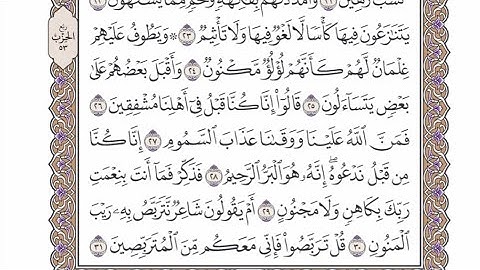 كَسَبَ رَهِينٌ ٢١ وَأَمْدَدْنَٰهُم بِفَٰكِهَةٍ وَلَحْمٍ مِّمَّا يَشْتَهُونَ ٢٢
يَتَنَٰزَعُونَ فِيهَا كَأْسًا لَّا لَغْوٌ فِيهَا وَلَا تَأْثِيمٌ ٢٣ ۞ وَيَطُوفُ عَلَيْهِمْ
غِلْمَانٌ لَّهُمْ كَأَنَّهُمْ لُؤْلُؤٌ مَّكْنُونٌ ٢٤ وَأَقْبَلَ بَعْضُهُمْ عَلَىٰ
بَعْضٍ يَتَسَآءَلُونَ ٢٥ قَالُوٓا۟ إِنَّا كُنَّا قَبْلُ فِىٓ أَهْلِنَا مُشْفِقِينَ ٢٦
فَمَنَّ ٱللَّهُ عَلَيْنَا وَوَقَىٰنَا عَذَابَ ٱلسَّمُومِ ٢٧ إِنَّا كُنَّا
مِن قَبْلُ نَدْعُوهُ ۖ إِنَّهُۥ هُوَ ٱلْبَرُّ ٱلرَّحِيمُ ٢٨ فَذَكِّرْ فَمَآ أَنتَ بِنِعْمَتِ
رَبِّكَ بِكَاهِنٍ وَلَا مَجْنُونٍ ٢٩ أَمْ يَقُولُونَ شَاعِرٌ نَّتَرَبَّصُ بِهِۦ رَيْبَ
ٱلْمَنُونِ ٣٠ قُلْ تَرَبَّصُوا۟ فَإِنِّى مَعَكُم مِّنَ ٱلْمُتَرَبِّصِينَ ٣١
ربع
الحزب
٥٣